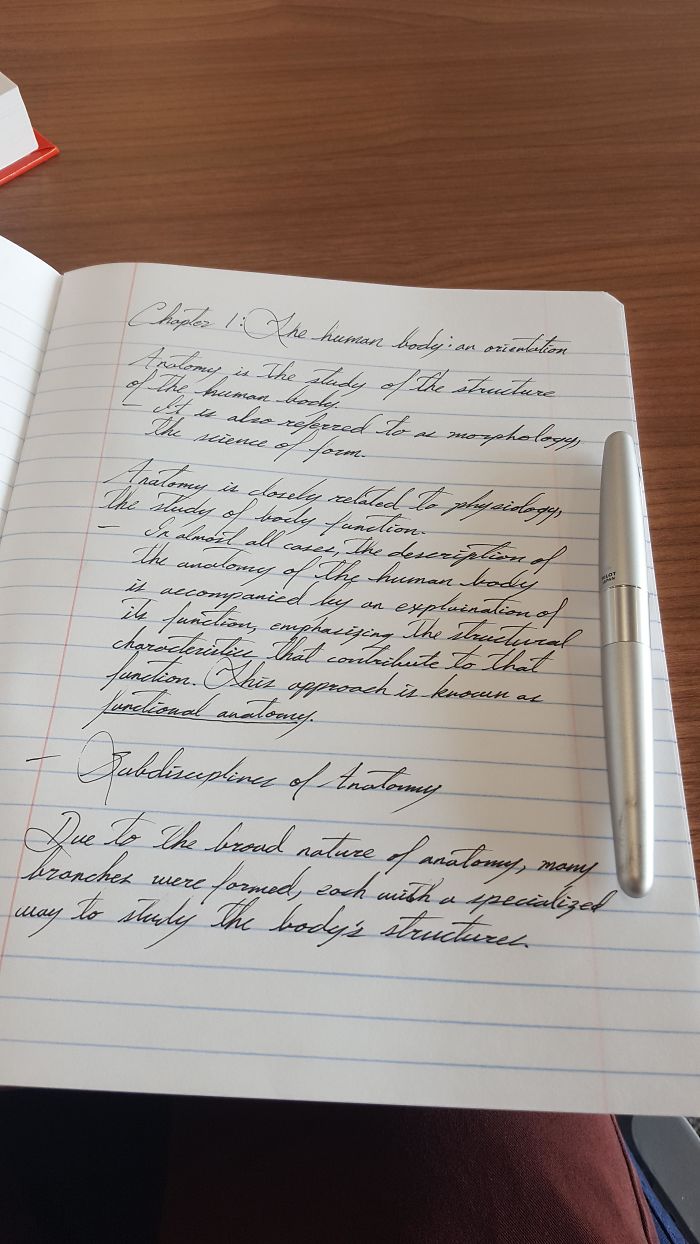 Chapter 1: The human body: an orientation
Anatomy is the study of the structure
of the human body.
- It is also referred to as morphology,
the science of form.
Anatomy is closely related to physiology,
the study of body function.
- In almost all cases, the description of
the anatomy of the human body
is accompanied by an explaination of
its function, emphasizing the structural
characteristics that contribute to that
function. This approach is known as
functional anatomy.
- Subdisciplines of Anatomy
Due to the broad nature of anatomy, many
branches were formed, each with a specialized
way to study the body's structures.
PILOT
JAPAN